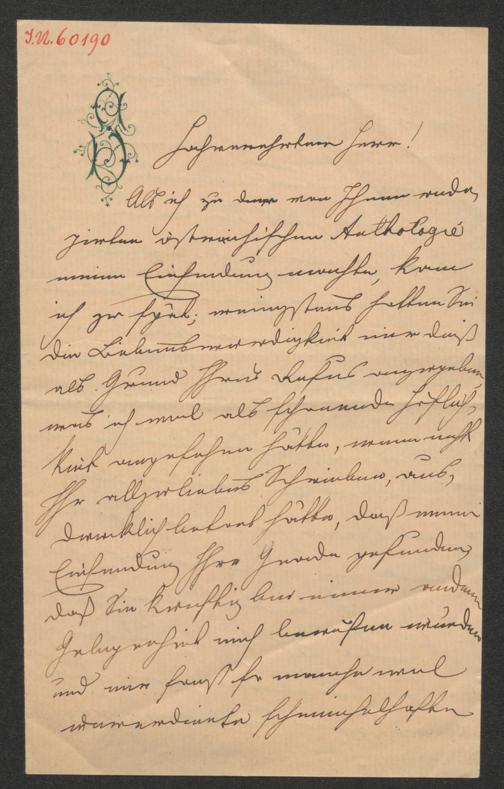 I.N. 60190
Hochverehrter Herr!
Als ich zu der von Ihnen redi-
girten östreichischen Anthologie
meine Einsendung machte, kam
ich zu spät; wenigstens hatten Sie
die Liebenswürdigkeit mir dieß
als Grund Ihres anzugeben
was ich wol als schonende Höflich-
keit angesehen hätte, wenn nicht
Ihr allerliebstes Schreiben, aus-
drücklich betont hätte, daß meine
Einsendung Ihre Gnade gefunden,
daß Sie künftig bei einer andern
Gelegenheit mich würden
und mir so manche wol
unverdiente schmeichelhafte